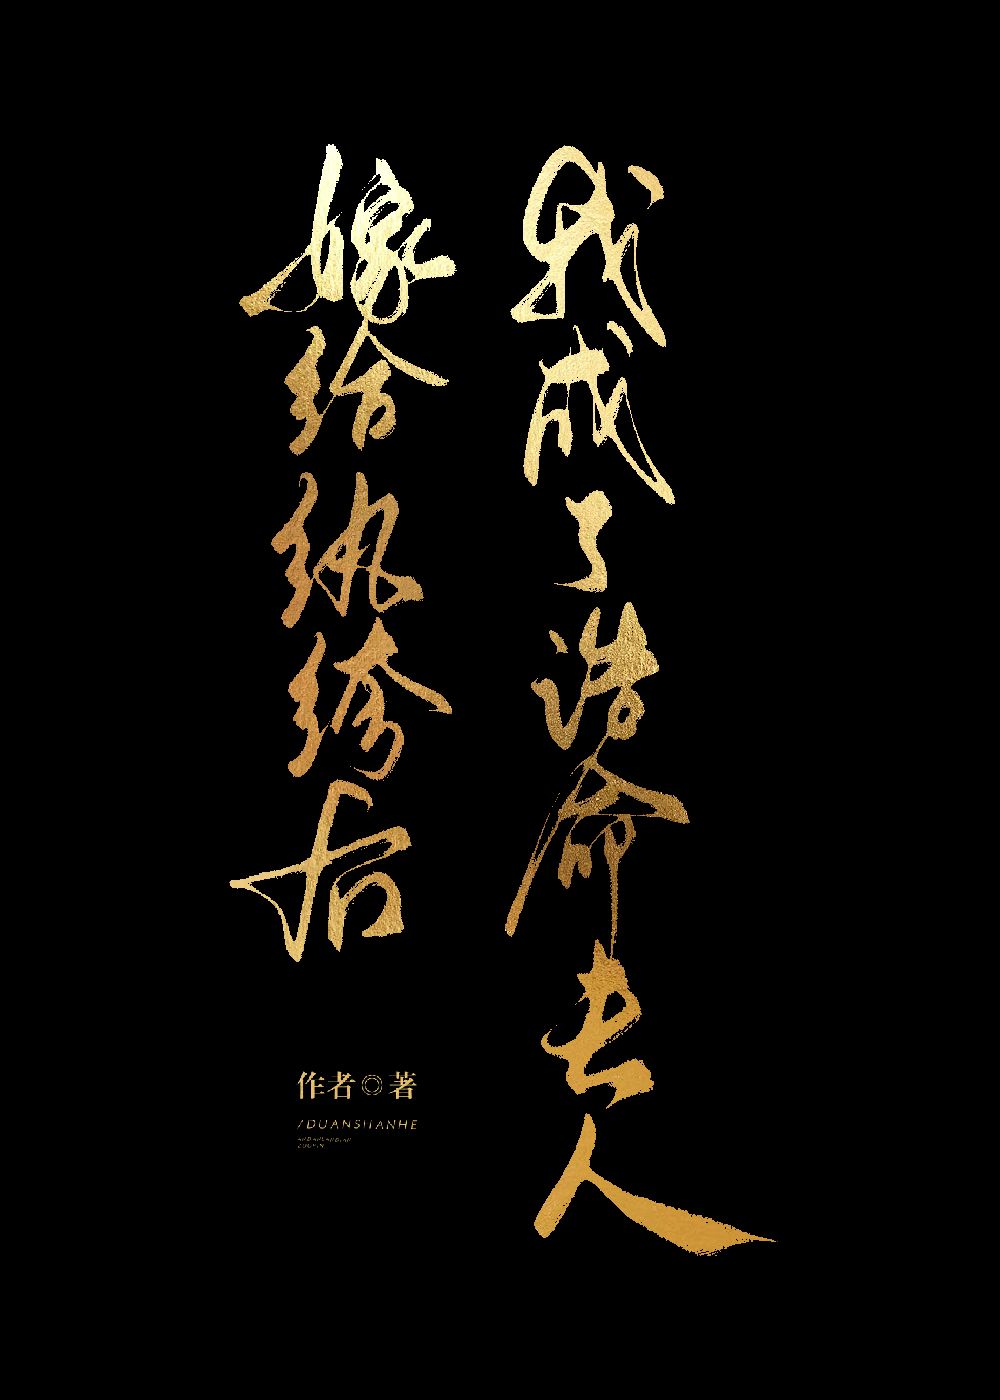 嫁给纨绔后
我成了诰命夫人
作者◎著
/DUANSITANHE